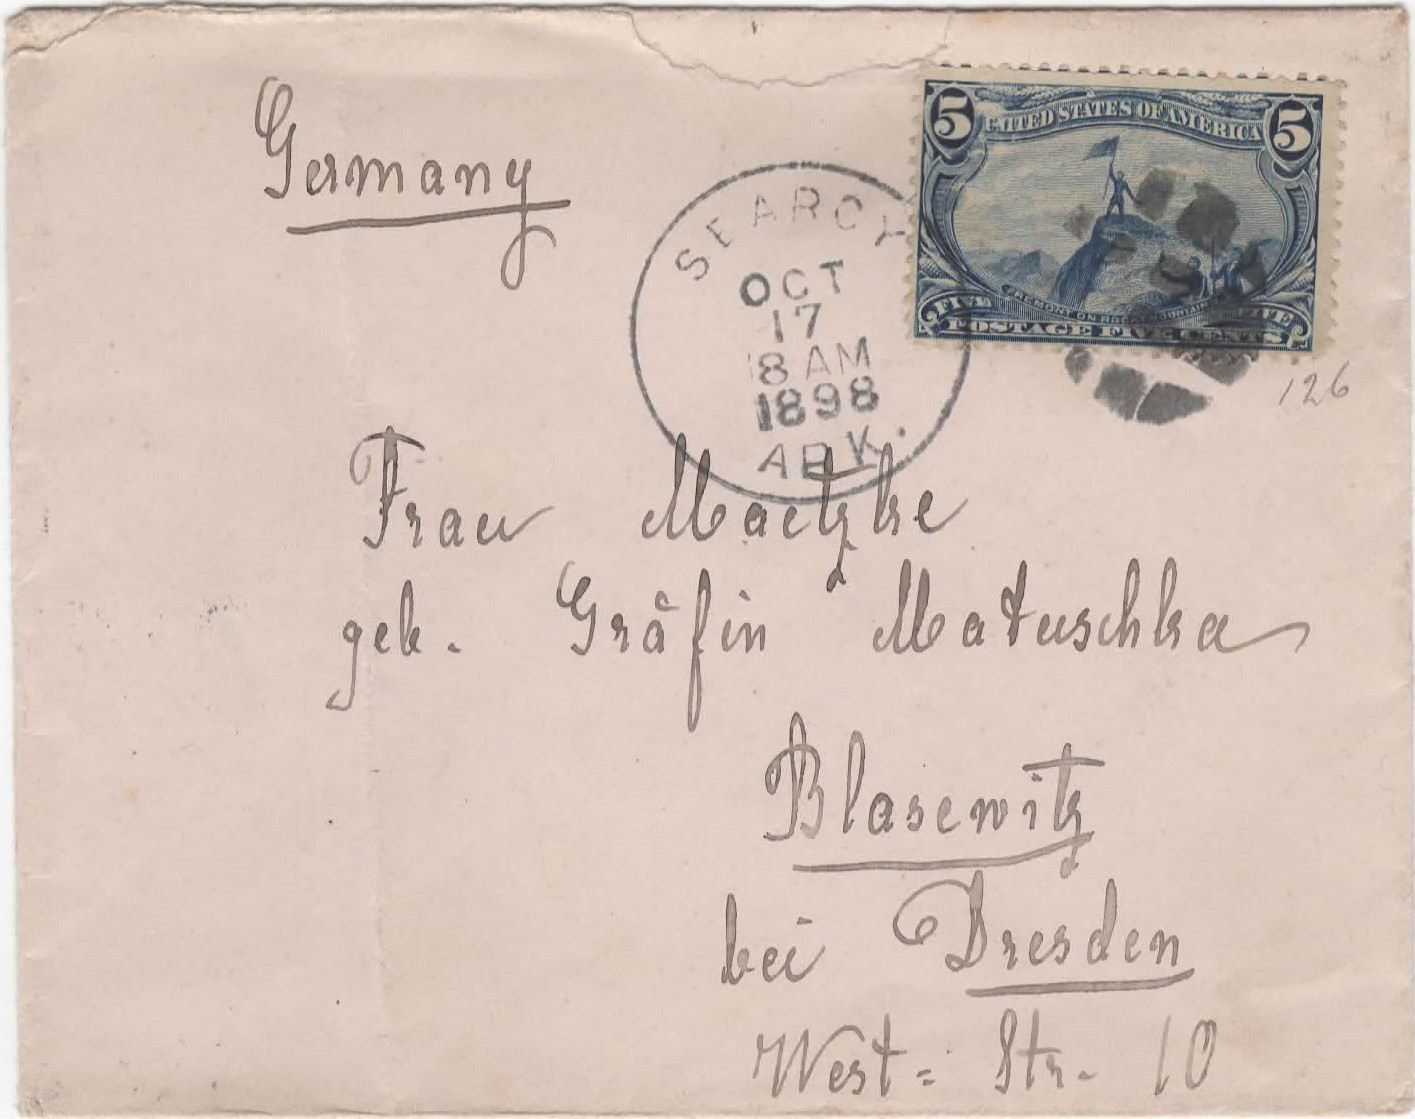 Germany
5 UNITED STATES OF AMERICA 5
SEARCY
OCT
17
8 AM
1898
ARK.
FREMONT ON ROCKY MOUNTAINS
FIVE FIVE
POSTAGE FIVE CENTS
126
Frau Maetzke
geb. Gräfin Matuschka
Blasewitz
bei Dresden
West= Str. 10